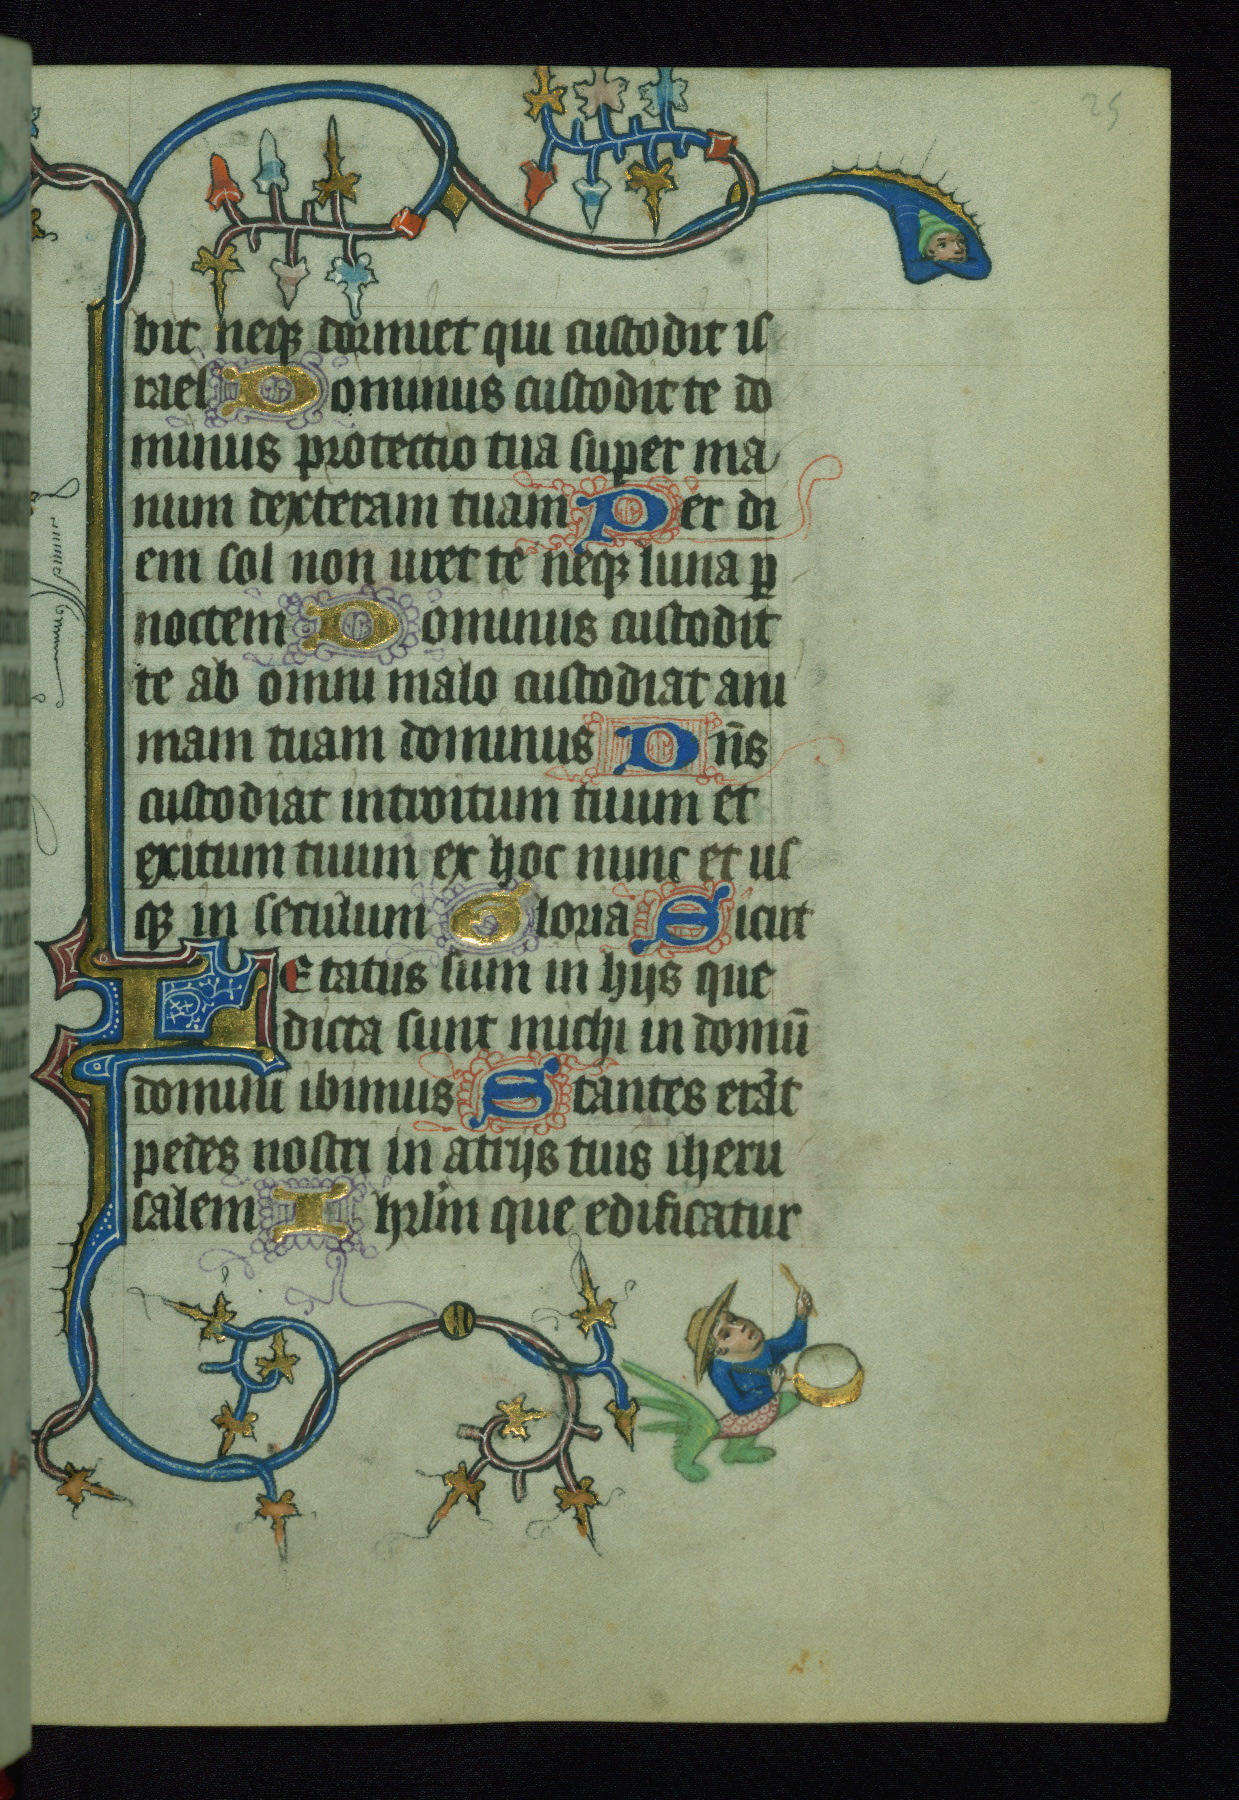 25
bit neqꝫ dormiet qui custodit is
rael Dominus custodit te do
minus protectio tua super ma
num dexteram tuam Per di
em sol non uret te neqꝫ luna ꝑ
noctem Dominus custodit
te ab omni malo custodiat ani
mam tuam dominus Dn̄s
custodiat introitum tuum et
exitum tuum ex hoc nunc et us
qꝫ in seculum Gloria Sicut
LEtatus sum in hijs que
dicta sunt michi in domū
domini ibimus Stantes erāt
pedes nostri in atrijs tuis iheru
salem Ihrl̄m que edificatur